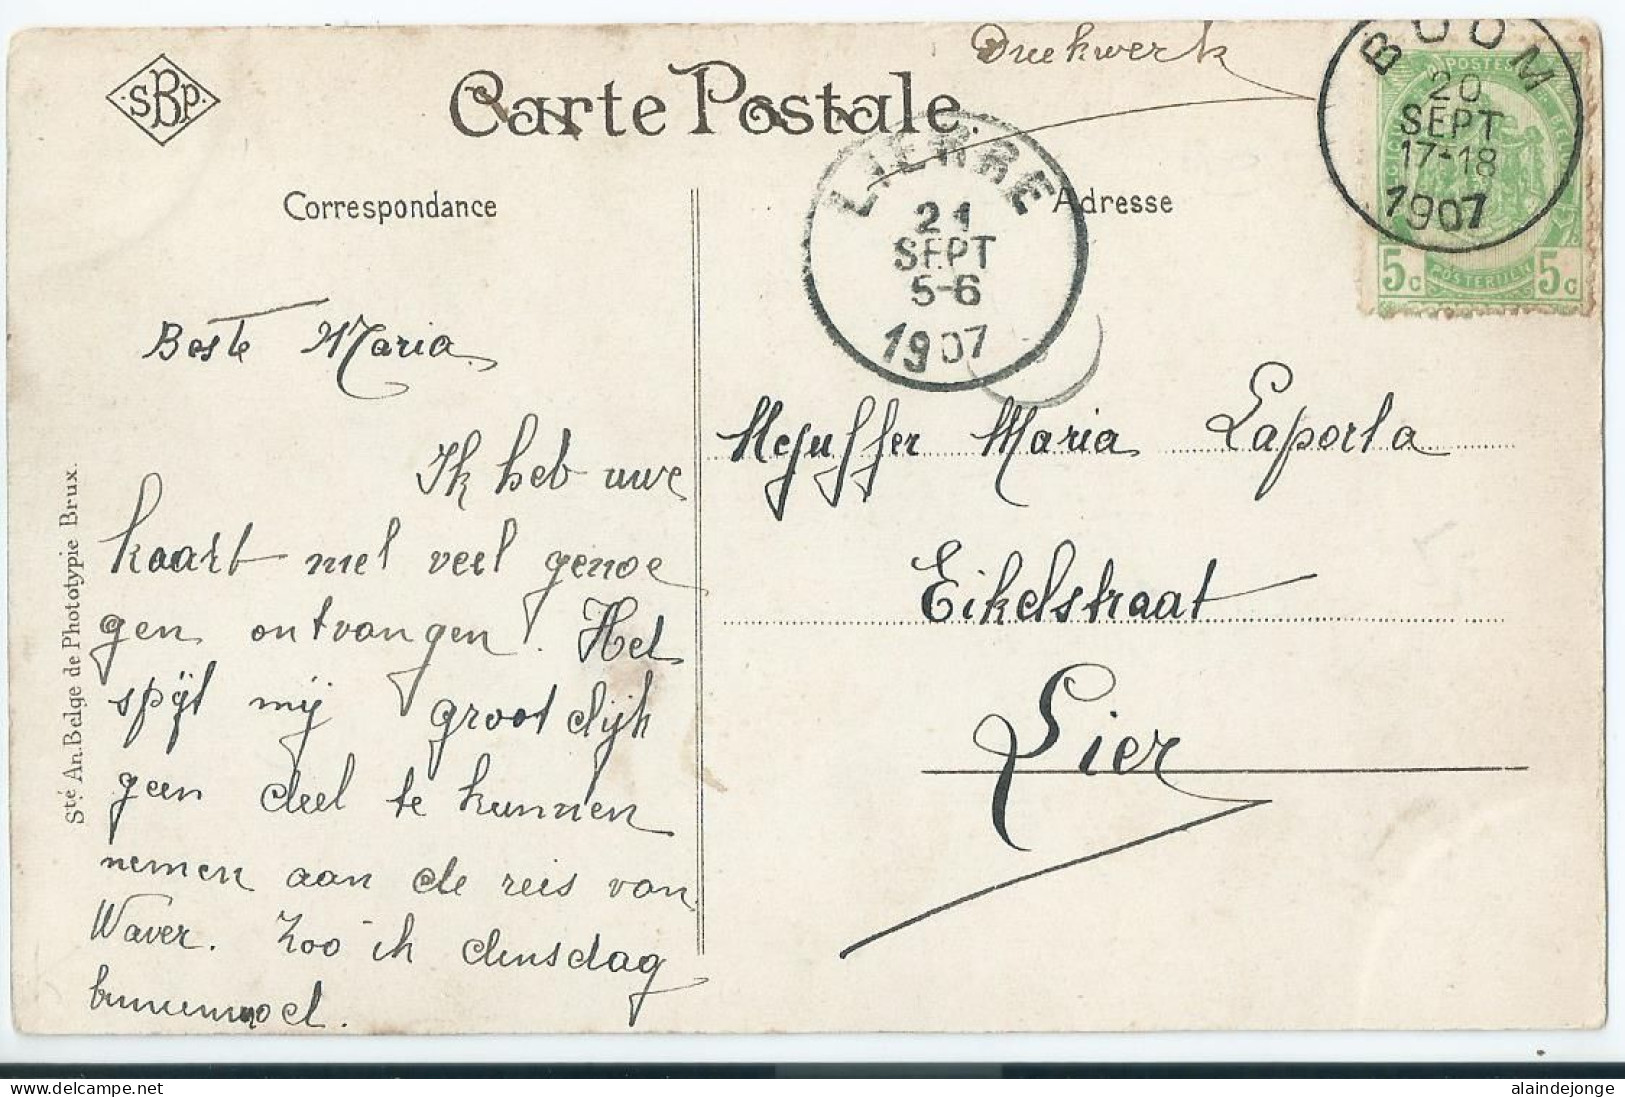 Drukwerk
SBP
Carte Postale.
BOOM
20
SEPT
17-18
1907
POSTES
5c POSTERIJEN 5c
LIERRE
21
SEPT
5-6
1907
Correspondance
Adresse
Beste Maria
Ik heb uwe
kaart met veel genoe
gen ontvangen. Het
spijt mij grootelijk
geen deel te kunnen
nemen aan de reis van
Waver. Zoo ik dinsdag
Mejuffer Maria Laporta
Eikelstraat
Lier
Sté An. Belge de Phototypie Brux.
© delcampe.net
alaindejonge